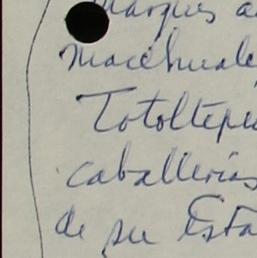 Marques a
macehuale
Totoltepe
caballerias
de su Esta